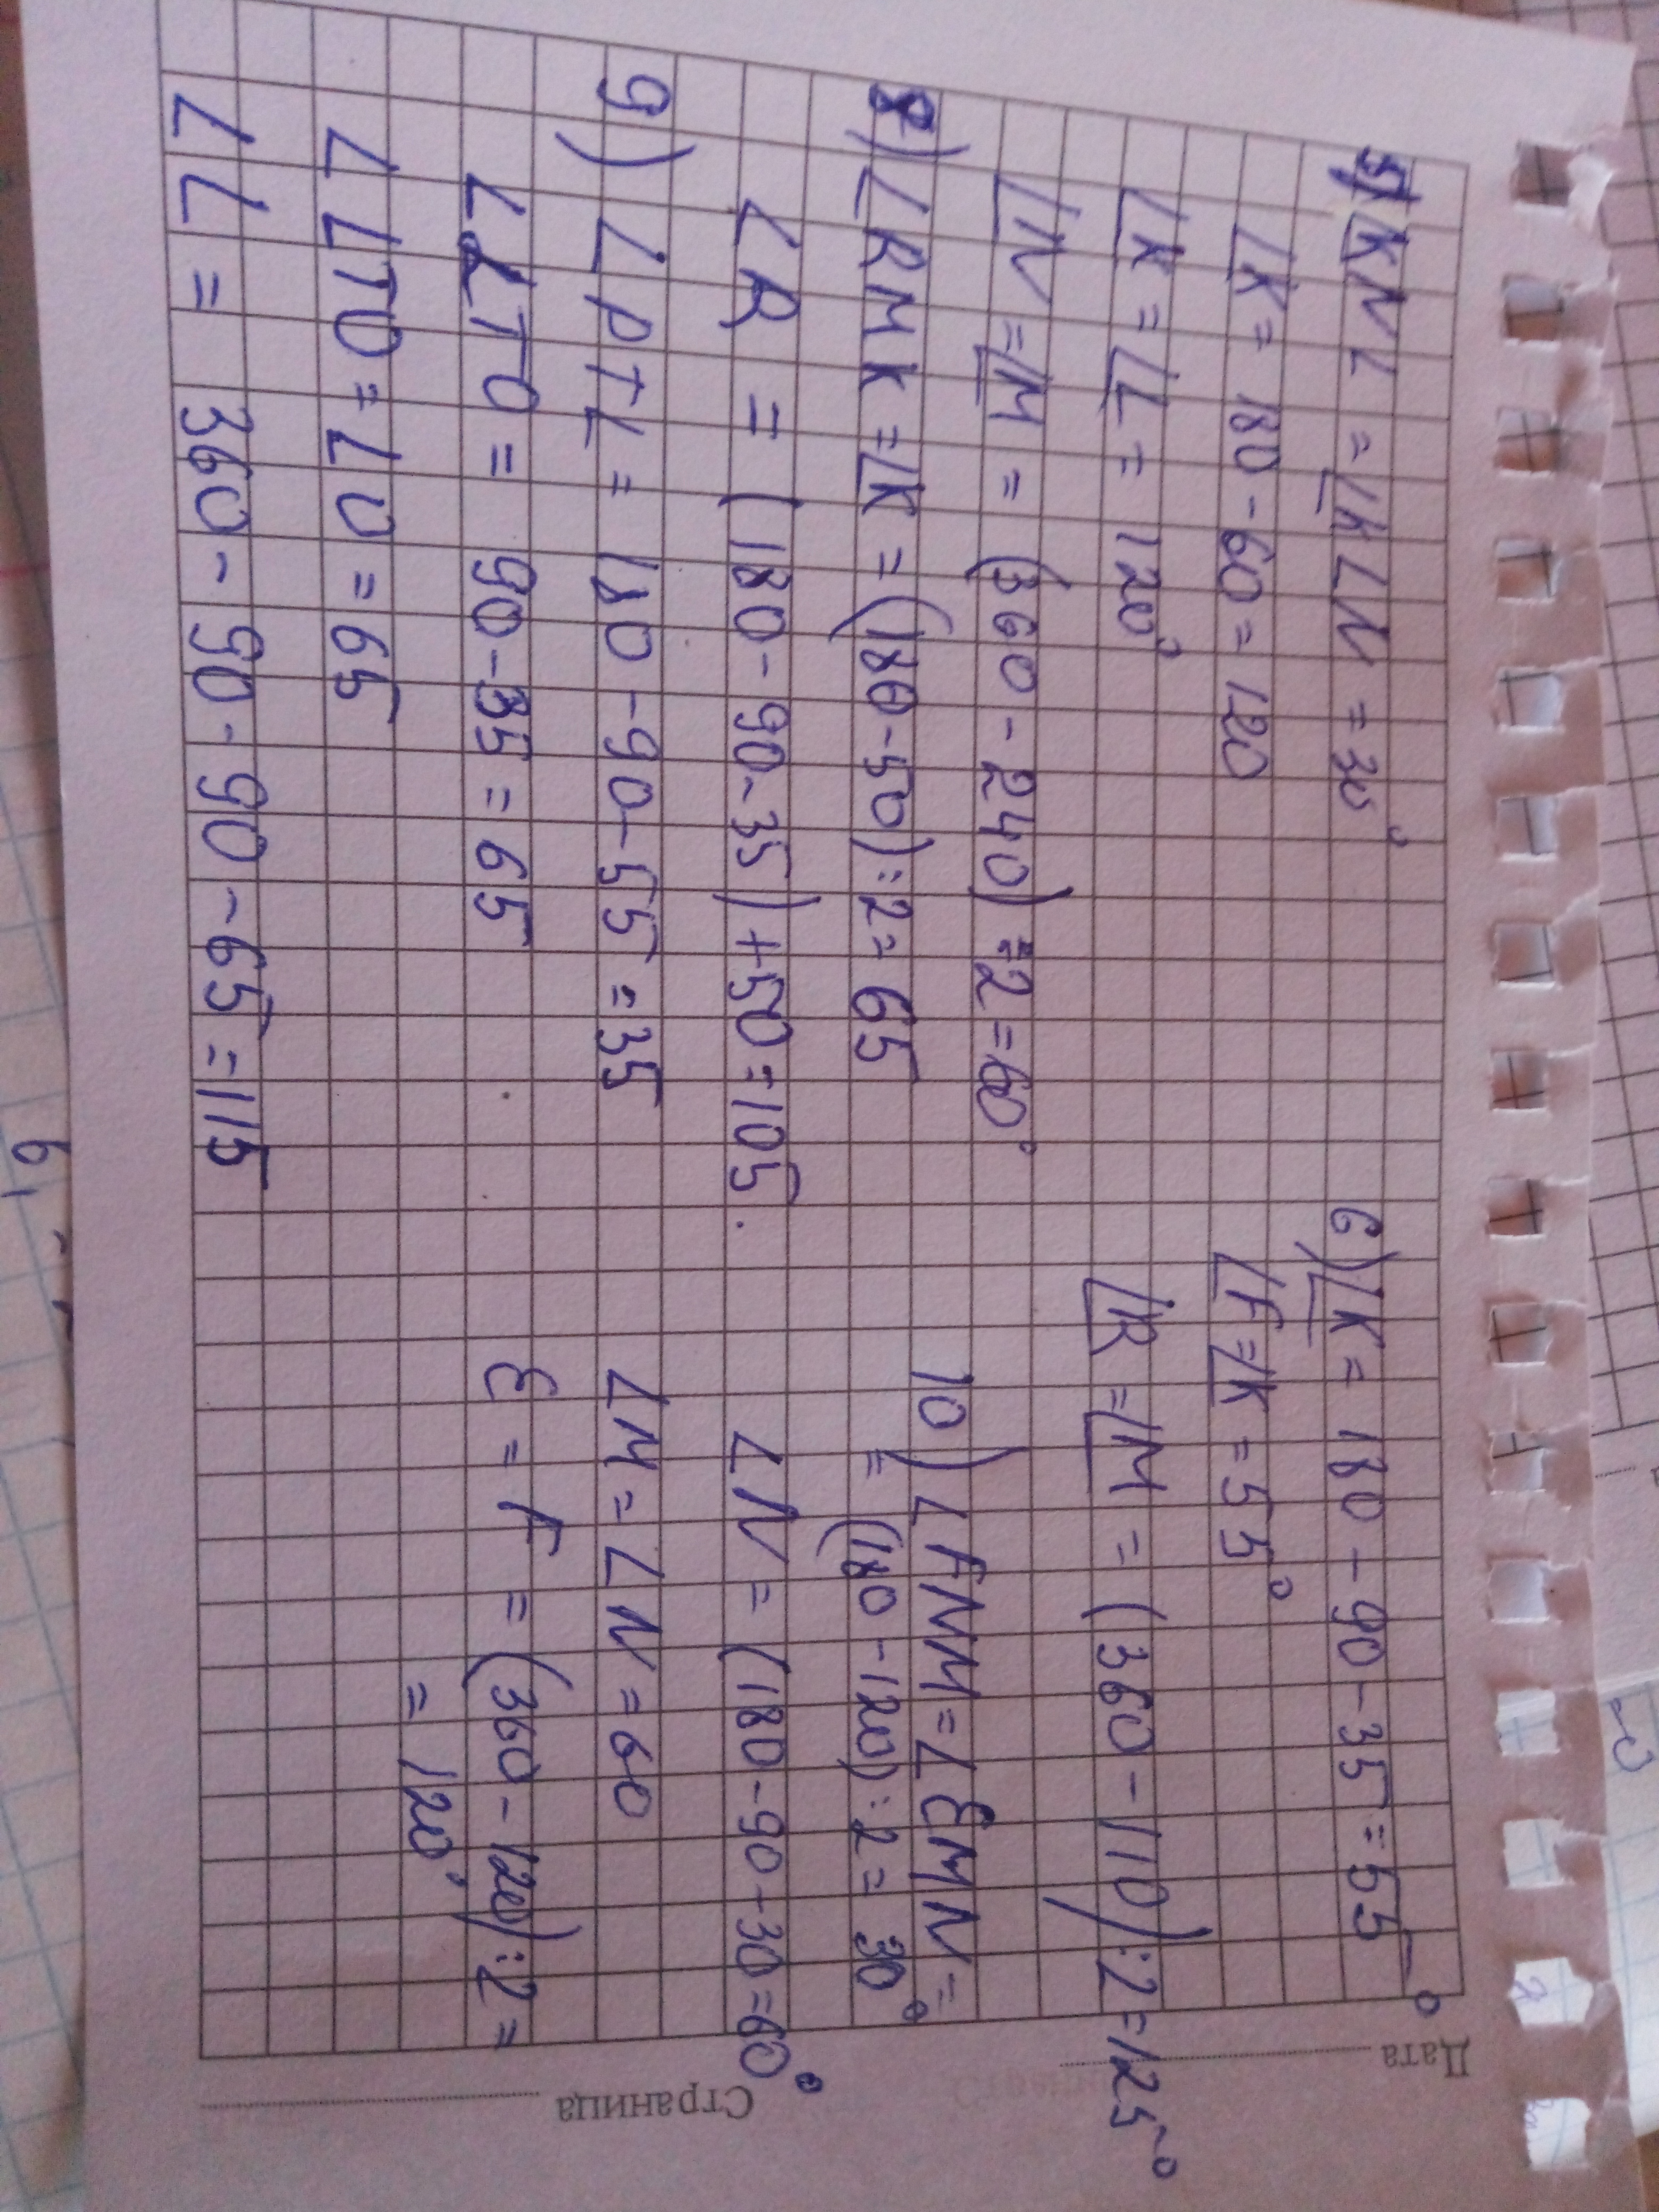 5) ∠KNL = ∠KLN = 30°
∠K = 180 - 60 = 120
∠K = ∠L = 120°
∠N = ∠M = (360 - 240) : 2 = 60°
8) ∠RMK = ∠K = (180 - 50) : 2 = 65
∠R = (180 - 90 - 35) + 50 = 105.
9) ∠PTL = 180 - 90 - 55 = 35
∠LTO = 90 - 35 = 65
∠LTO = ∠O = 65
∠L = 360 - 90 - 90 - 65 = 115
6) ∠K = 180 - 90 - 35 = 55°
∠F = ∠K = 55°
∠R = ∠M = (360 - 110) : 2 = 125°
10) ∠FNM = ∠EMN =
= (180 - 120) : 2 = 30°
∠N = (180 - 90 - 30 = 60°
∠M = ∠N = 60
E = F = (360 - 120) : 2 =
= 120°
Дата
Страница
6,